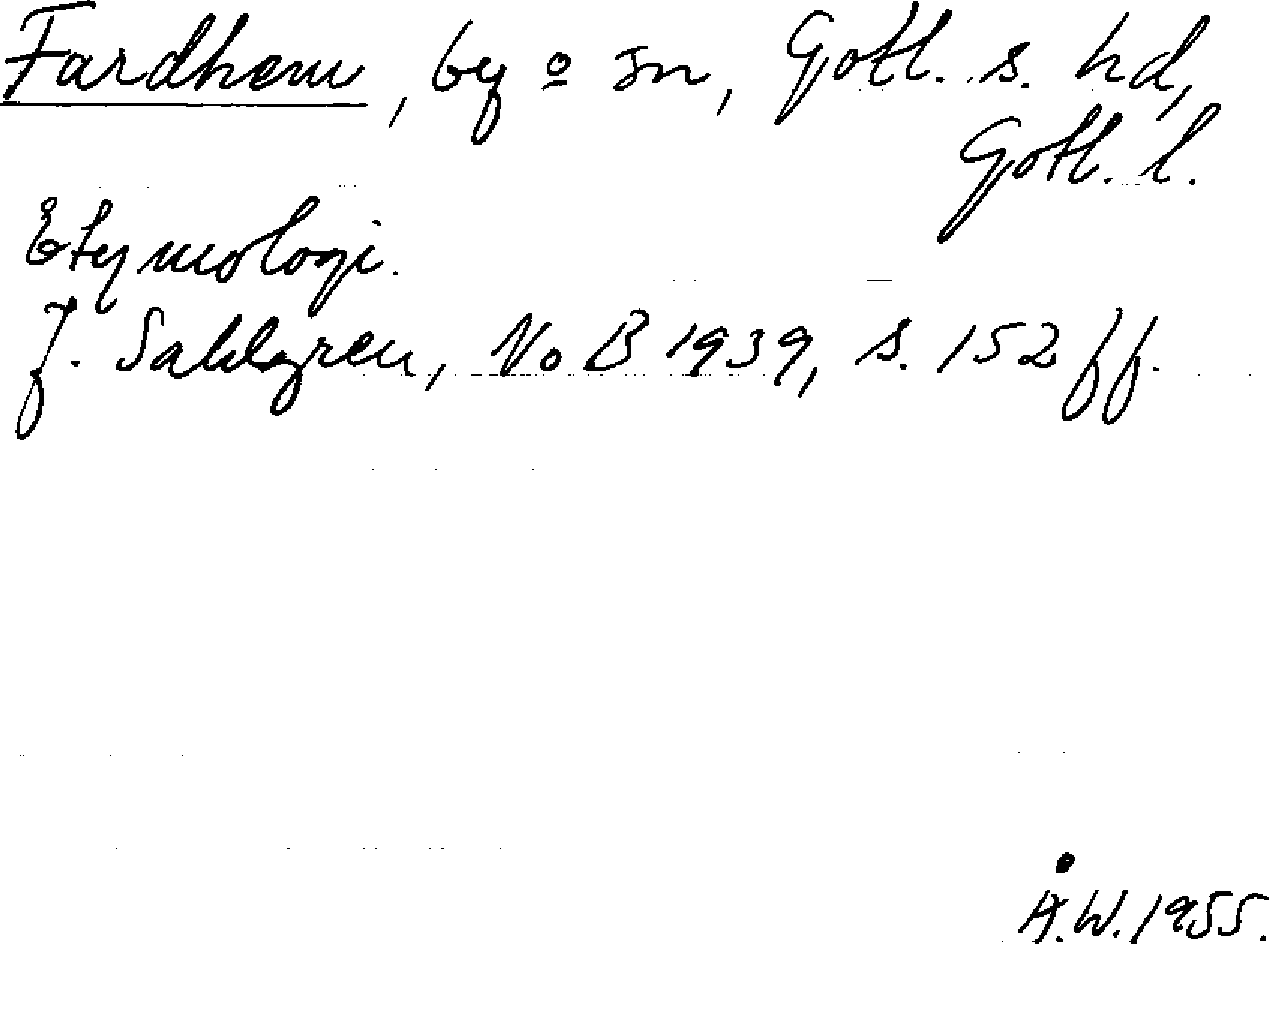 Fardhem, by o sn, Gotl. s. hd,
Gotl. l.
Etymologi.
J. Sahlgren, NoB 1939, s. 152 ff.
Å.W. 1955.